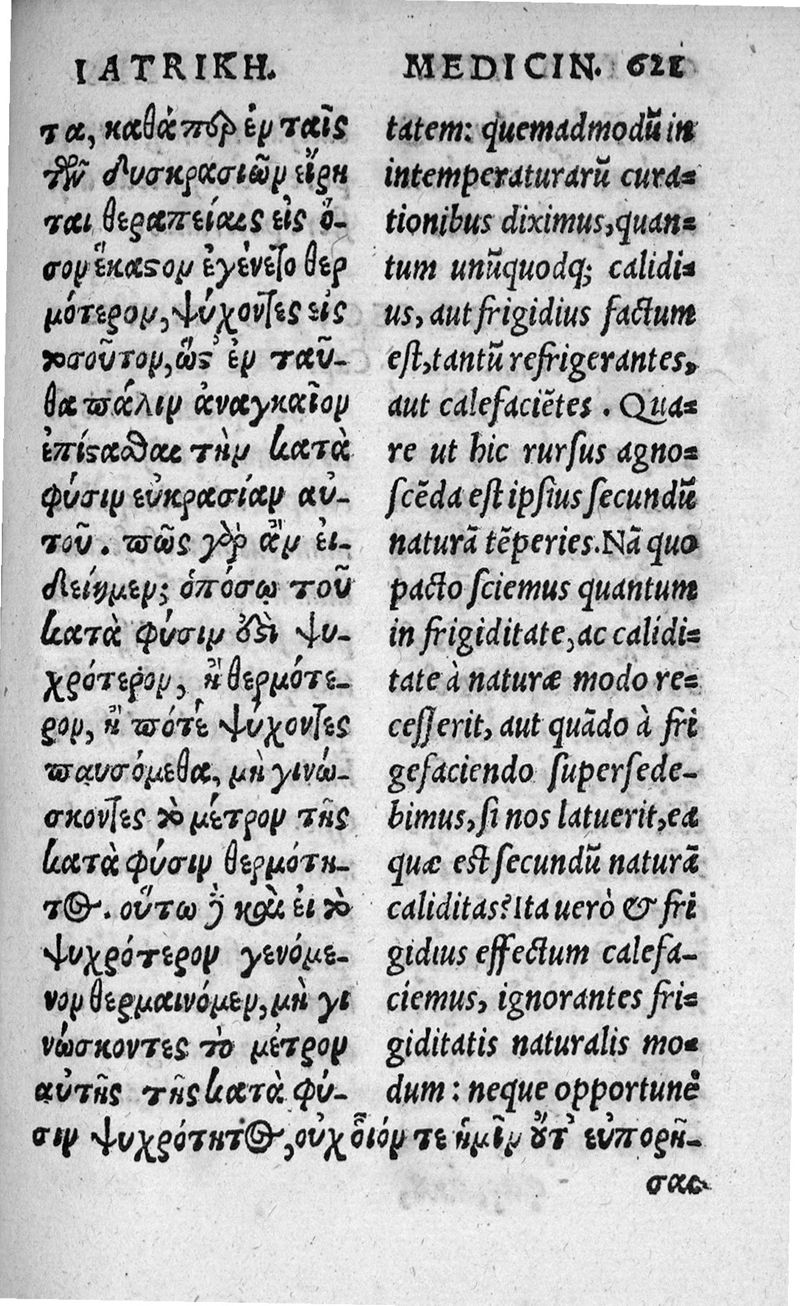 ΙΑΤΡΙΚΗ.
τα, καθάπερ ἐν ταῖς
τῶν δυσκρασιῶν εἴρη
ται θεραπείαις εἰς ὅ-
σον ἕκαστον ἐγένετο θερ
μότερον, ψύχοντες εἰς
τοσοῦτον, ὥστ' ἐν ταῦ-
θα πάλιν ἀναγκαῖον
ἐπίστασθαι τὴν κατὰ
φύσιν εὐκρασίαν αὐ-
τοῦ. πῶς γὰρ ἂν εἰ-
δείημεν; ὁπόσῳ τοῦ
κατὰ φύσιν ἐστὶ ψυ-
χρότερον, ἢ θερμότε-
ρον, ἢ πότε ψύχοντες
παυσόμεθα, μὴ γινώ-
σκοντες τὸ μέτρον τῆς
κατὰ φύσιν θερμότη-
τος. οὕτω δὲ καὶ εἰ τὸ
ψυχρότερον γενόμε-
νον θερμαινόμεν, μὴ γι
νώσκοντες τὸ μέτρον
αὐτῆς τῆς κατὰ φύ-
σιν ψυχρότητος, οὐχ οἷόν τε ἡμῖν οὔτ' εὐπορῆ-
σαι
MEDICIN. 621
tatem: quemadmodũ in
intemperaturarũ cura-
tionibus diximus, quan-
tum unũquodq; calidi-
us, aut frigidius factum
est, tantũ refrigerantes,
aut calefaciẽtes. Qua-
re ut hic rursus agno-
scẽda est ipsius secundũ
naturã tẽperies. Nã quo
pacto sciemus quantum
in frigiditate, ac calidi-
tate à naturæ modo re-
cesserit, aut quãdo à fri
gefaciendo supersede-
bimus, si nos latuerit, ea
quæ est secundũ naturã
caliditas? Ita uerò & fri
gidius effectum calefa-
ciemus, ignorantes fri-
giditatis naturalis mo-
dum: neque opportunè